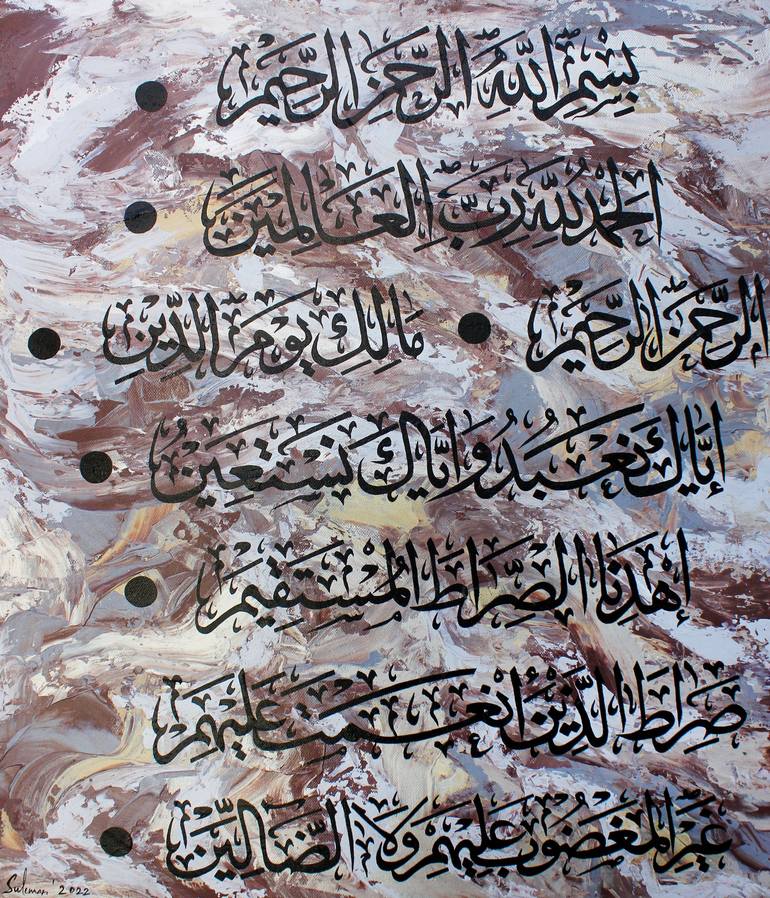 بِسْمِ اللَّهِ الرَّحْمَنِ الرَّحِيمِ ●
الْحَمْدُ لِلَّهِ رَبِّ الْعَالَمِينَ ●
الرَّحْمَنِ الرَّحِيمِ ● مَالِكِ يَوْمِ الدِّينِ ●
إِيَّاكَ نَعْبُدُ وَإِيَّاكَ نَسْتَعِينُ ●
إِهْدِنَا الصِّرَاطَ الْمُسْتَقِيمَ ●
صِرَاطَ الَّذِينَ أَنْعَمْتَ عَلَيْهِمْ
غَيْرِ الْمَغْضُوبِ عَلَيْهِمْ وَلَا الضَّالِّينَ ●
Suleman '2022